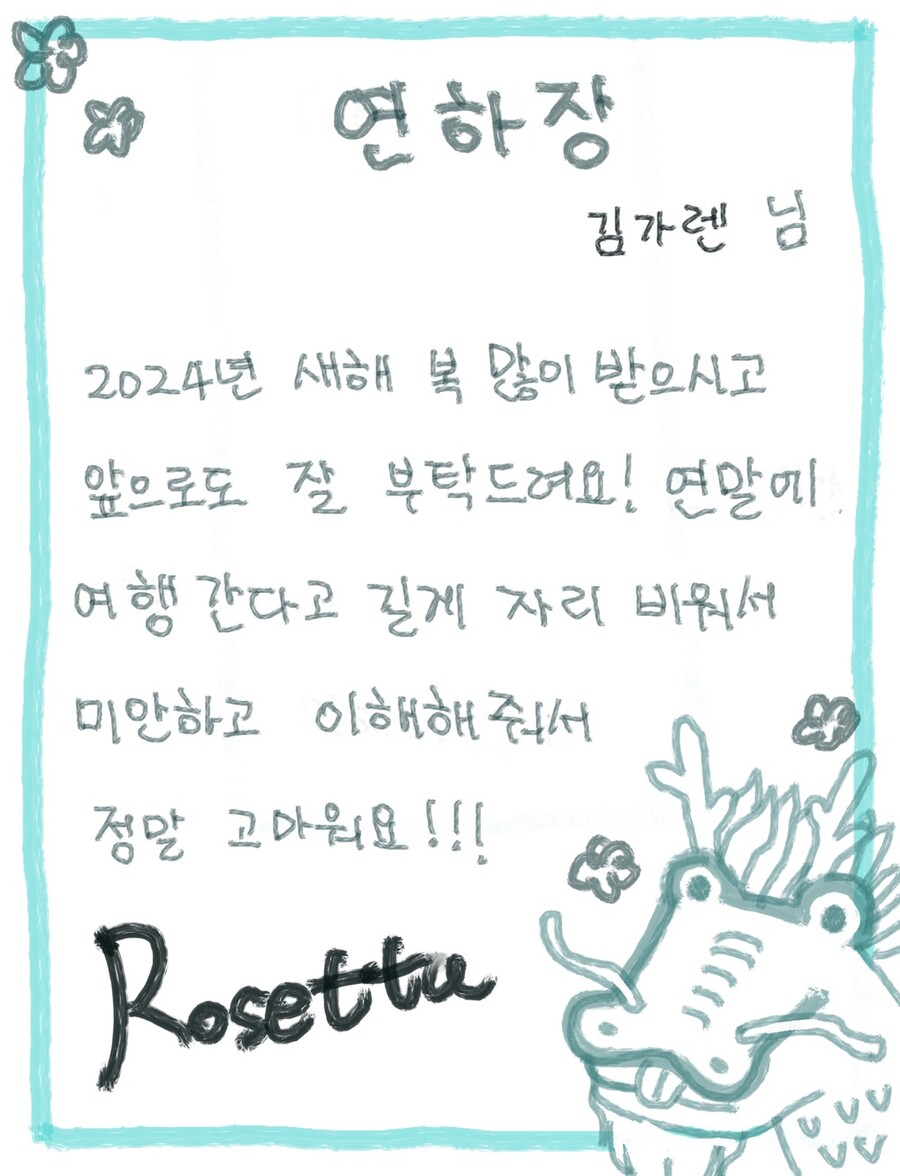 연하장
김가렌 님
2024년 새해 복 많이 받으시고
앞으로도 잘 부탁드려요! 연말에
여행 간다고 길게 자리 비워서
미안하고 이해해줘서
정말 고마워요!!!
Rosetta